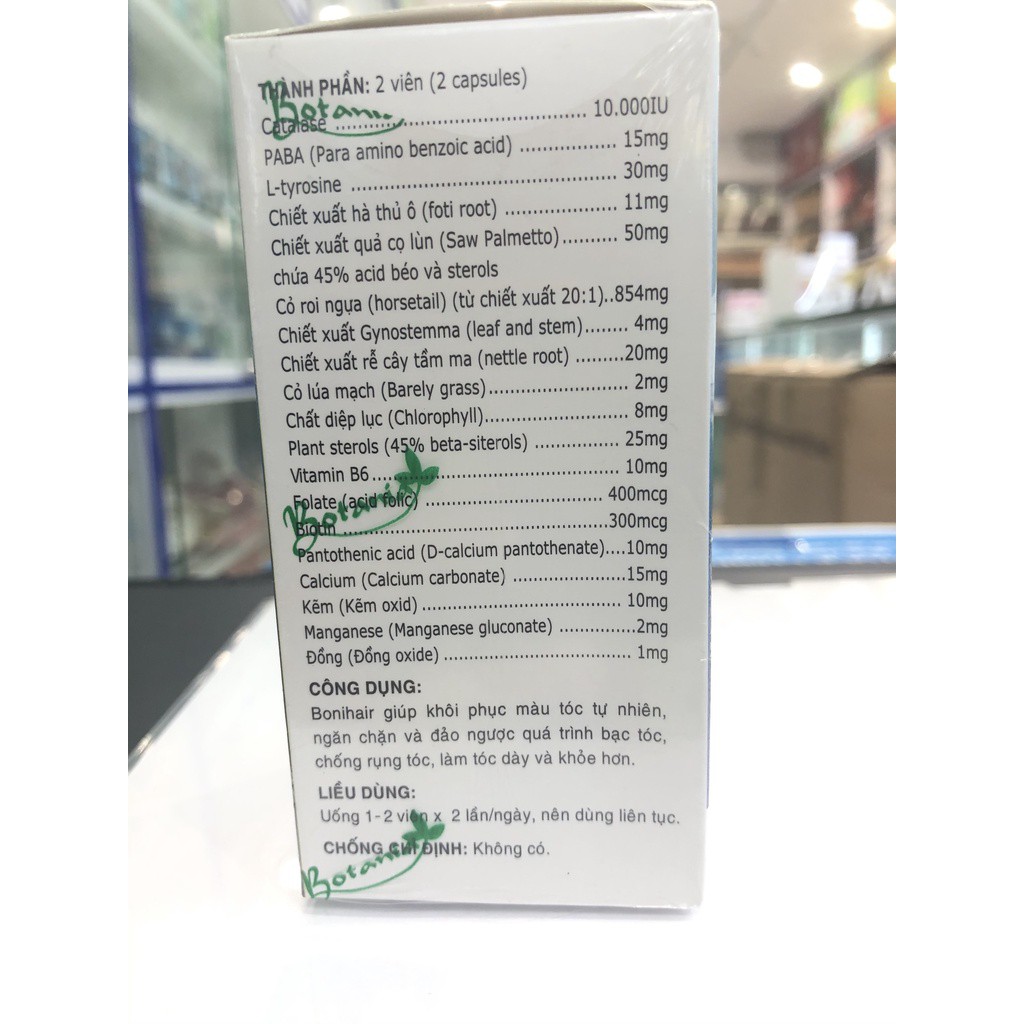 THÀNH PHẦN: 2 viên (2 capsules)
Botani
Catalase .......................................... 10.000IU
PABA (Para amino benzoic acid) ................. 15mg
L-tyrosine .............................................. 30mg
Chiết xuất hà thủ ô (foti root) ................... 11mg
Chiết xuất quả cọ lùn (Saw Palmetto).......... 50mg
chứa 45% acid béo và sterols
Cỏ roi ngựa (horsetail) (từ chiết xuất 20:1)..854mg
Chiết xuất Gynostemma (leaf and stem)........ 4mg
Chiết xuất rễ cây tầm ma (nettle root) .........20mg
Cỏ lúa mạch (Barely grass)........................ 2mg
Chất diệp lục (Chlorophyll)......................... 8mg
Plant sterols (45% beta-siterols) ............... 25mg
Vitamin B6............................................ 10mg
Folate (acid folic) ................................ 400mcg
Botanist
Biotin ...............................................300mcg
Pantothenic acid (D-calcium pantothenate)....10mg
Calcium (Calcium carbonate) ....................15mg
Kẽm (Kẽm oxid).................................... 10mg
Manganese (Manganese gluconate) ..............2mg
Đồng (Đồng oxide) ................................. 1mg
CÔNG DỤNG:
Bonihair giúp khôi phục màu tóc tự nhiên,
ngăn chặn và đảo ngược quá trình bạc tóc,
chống rụng tóc, làm tóc dày và khỏe hơn.
LIỀU DÙNG:
Uống 1-2 viên x 2 lần/ngày, nên dùng liên tục.
CHỐNG CHỈ ĐỊNH: Không có.
Botanist